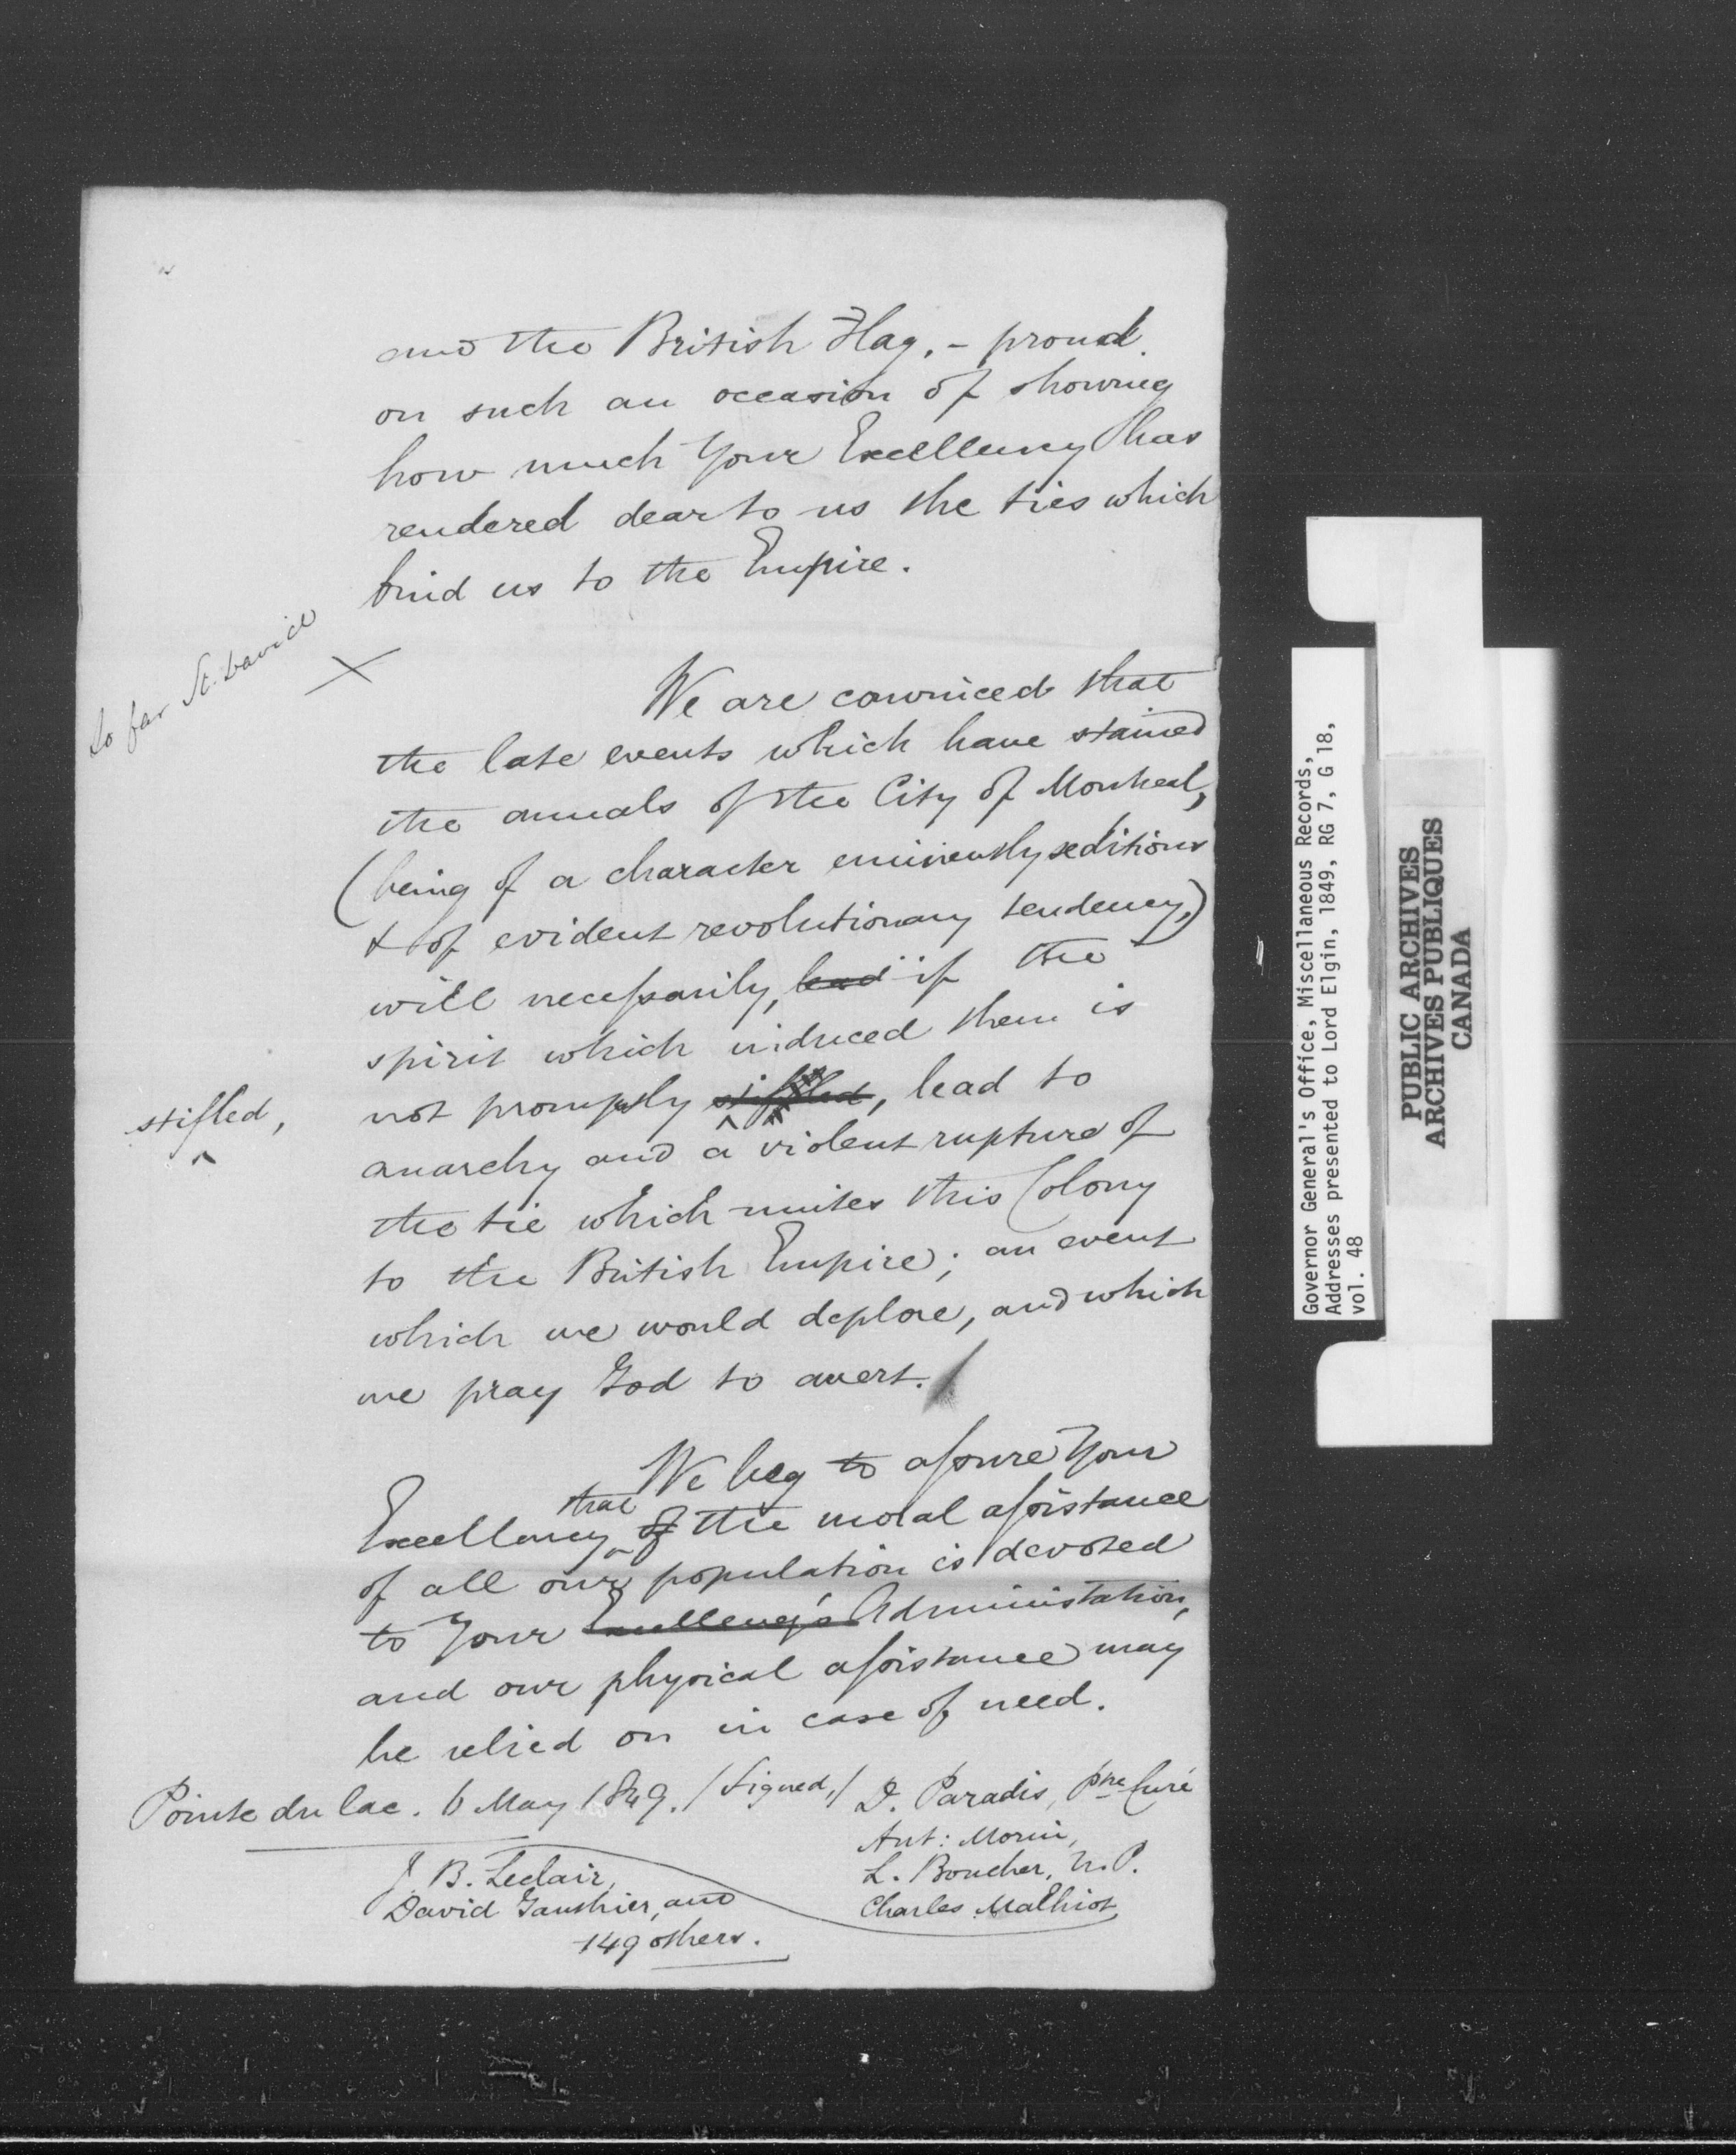 and the British Flag, – proud
on such an occasion of showing
how much Your Excellency has
rendered dear to us the ties which
bind us to the Empire.
So far St. David
×
We are convinced that
the late events which have stained
the annals of the City of Montreal,
(being of a character eminently seditious
& of evident revolutionary tendency,)
will necessarily, lead if the
spirit which induced them is
not promptly stifled, lead to
stifled,
anarchy and a violent rupture of
the tie which unites this Colony
to the British Empire; an event
which we would deplore, and which
we pray God to avert.
We beg to assure Your
Excellency that of the moral assistance
of all our population is devoted
to Your Excellency's Administation,
and our physical assistance may
be relied on in case of need.
Pointe du lac. 6 May 1849. /Signed,/ D. Paradis, Ptre Curé
Ant: Morin,
L. Boucher, N.P.
Charles Malhiot
J. B. Leclair,
David Gauthier, and
149 others.
Governor General's Office, Miscellaneous Records,
Addresses presented to Lord Elgin, 1849, RG 7, G 18,
vol. 48
PUBLIC ARCHIVES
ARCHIVES PUBLIQUES
CANADA